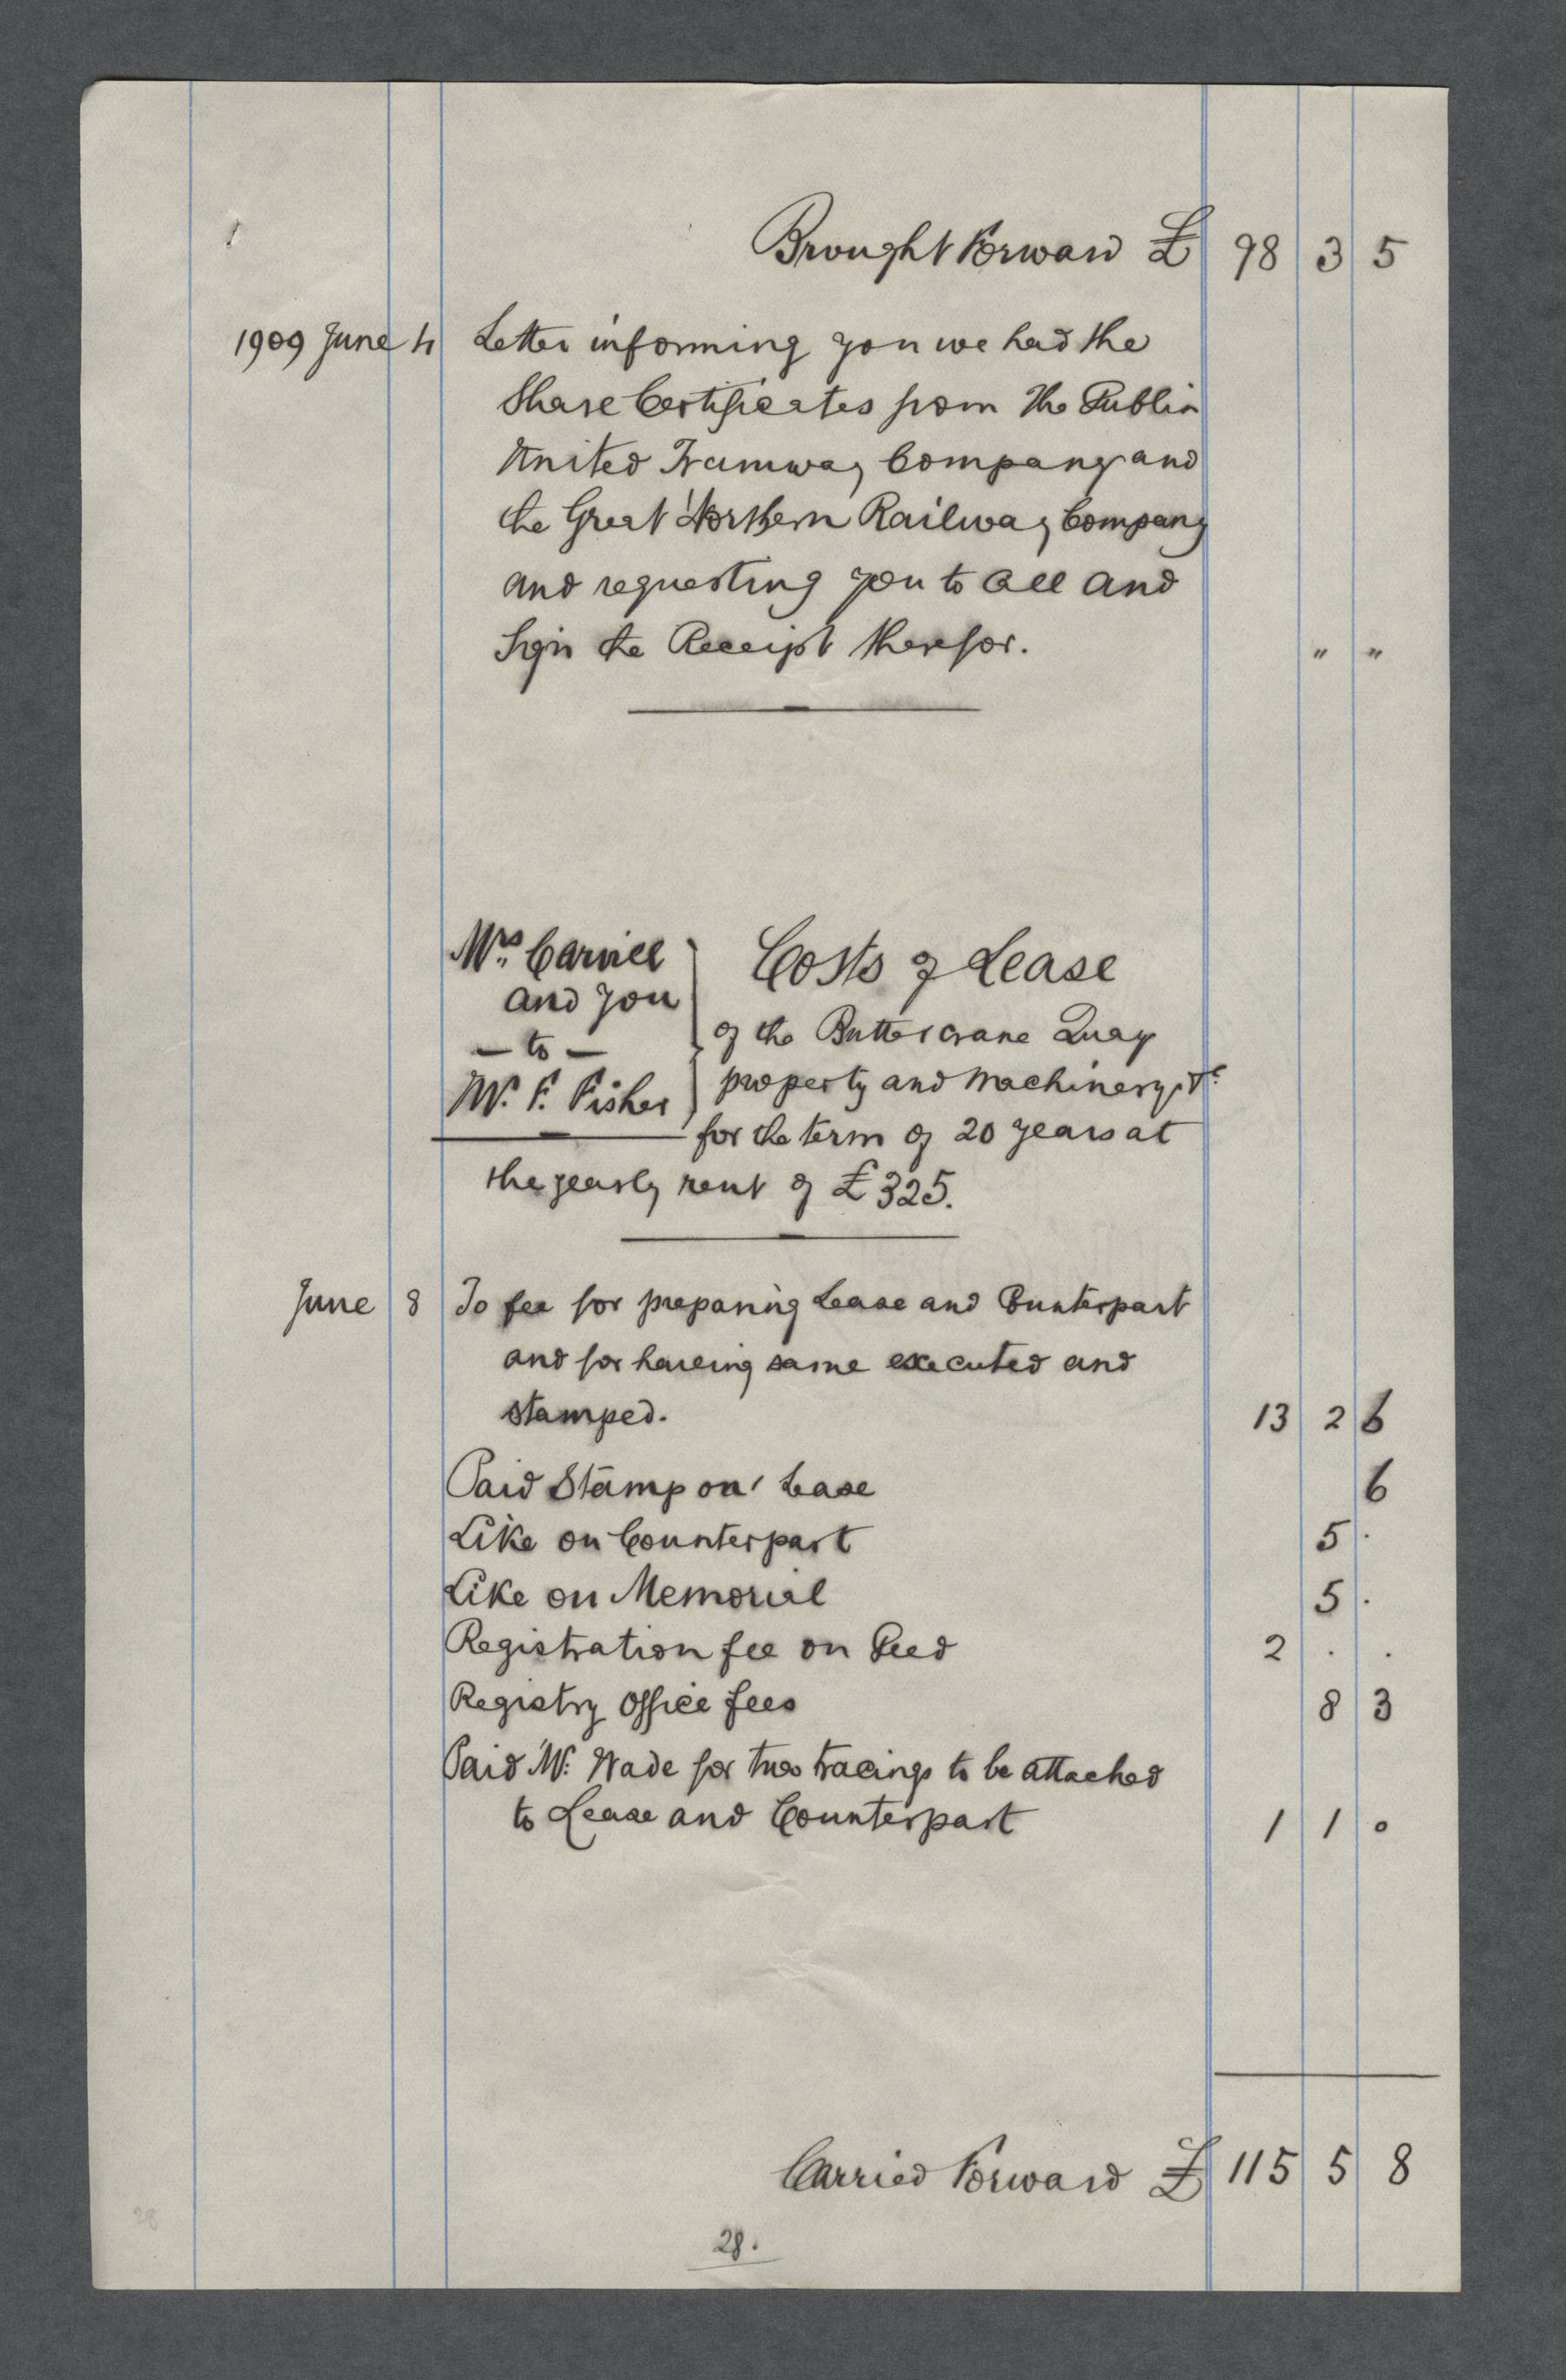 Brought Forward £ 98 3 5
1909 June 4 Letter informing you we had the
Share Certificates from The Dublin
United Tramway Company and
the Great Northern Railway Company
and requesting you to call and
sign the Receipt therefor. " "
Mrs. Carvill Costs of Lease
and you
of the Buttercrane Quay
— to —
property and Machinery &c
Mr. F. Fisher
for the term of 20 years at
the yearly rent of £325.
June 8 To fee for preparing Lease and Counterpart
and for having same executed and
stamped. 13 2 6
Paid Stamp on Lease 6
Like on Counterpart 5 .
Like on Memorial 5 .
Registration fee on Deed 2 . .
Registry Office fees 8 3
Paid Mr. Wade for two tracings to be attached
to Lease and Counterpart 1 1 0
Carried Forward £ 115 5 8
28.
28